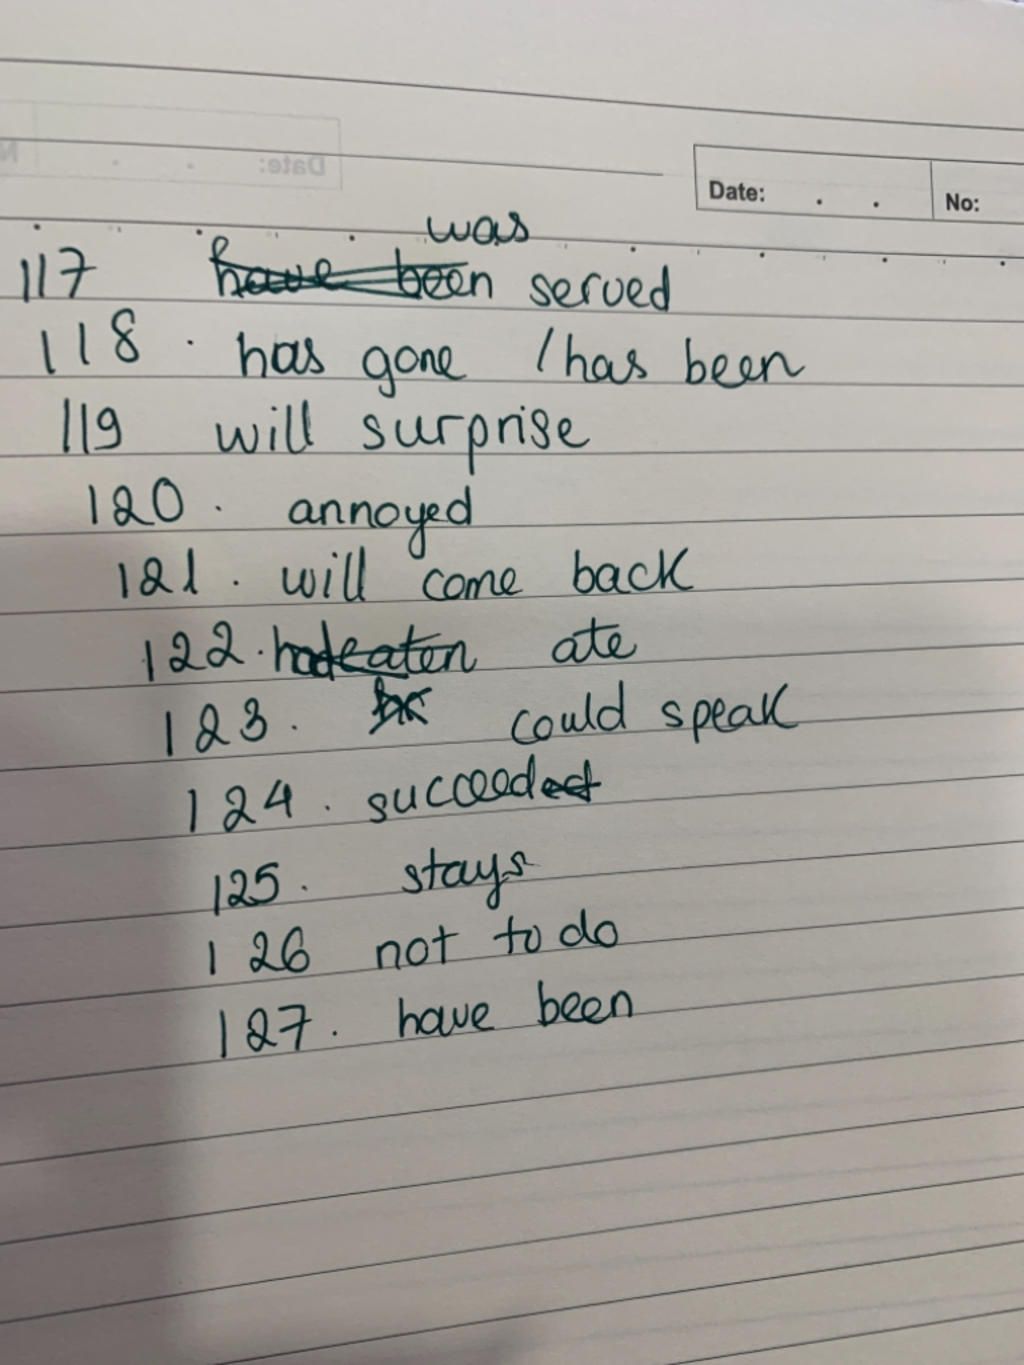 Date: . . No:
was
117 have been served
118 . has gone / has been
119 will surprise
120 . annoyed
121 . will come back
122 . had eaten ate
123 . could speak
124 . succeeded
125 . stays
126 not to do
127 . have been